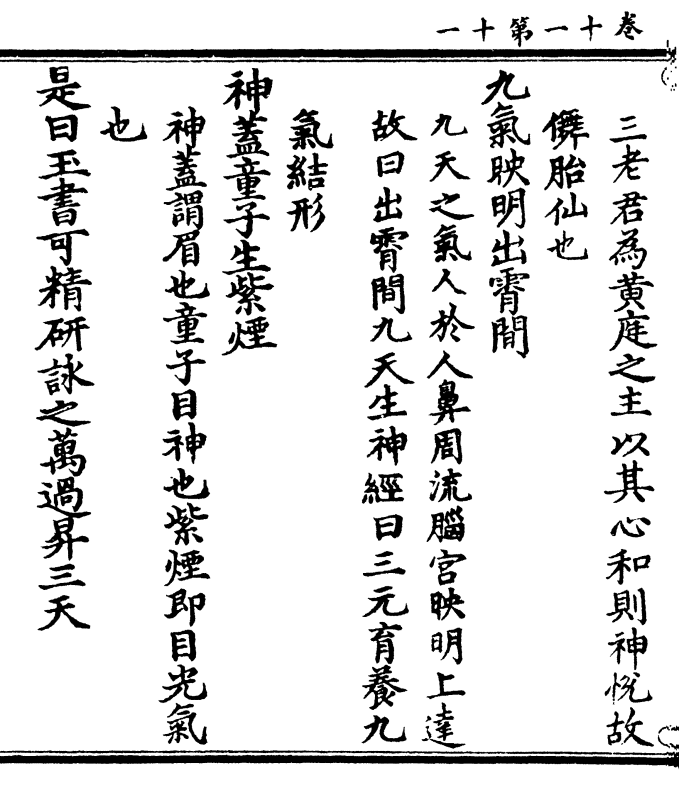 卷十一第十一
三老君為黃庭之主以其心和則神悅故
儛胎仙也
九氣映明出霄間
九天之氣入於人鼻周流腦宮映明上達
故曰出霄間九天生神經曰三元育養九
氣結形
神蓋童子生紫煙
神蓋謂眉也童子目神也紫煙即目光氣
也
是曰玉書可精研詠之萬過昇三天